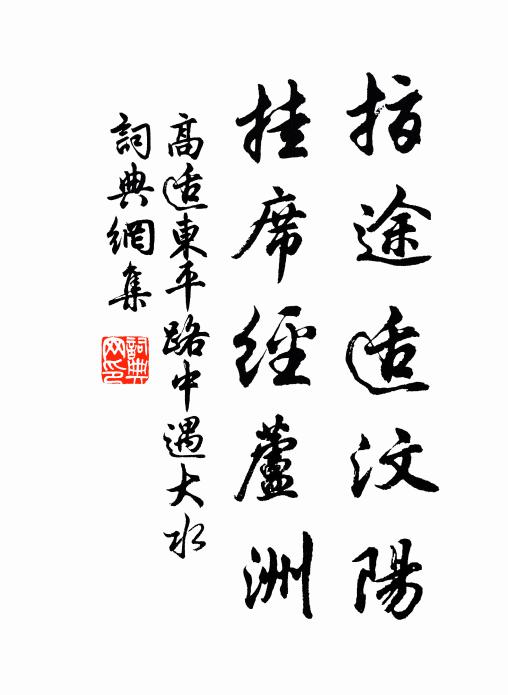 指途适汶陽
挂席經蘆洲
高适東平路中遇大水
詞典網集
詞典网印